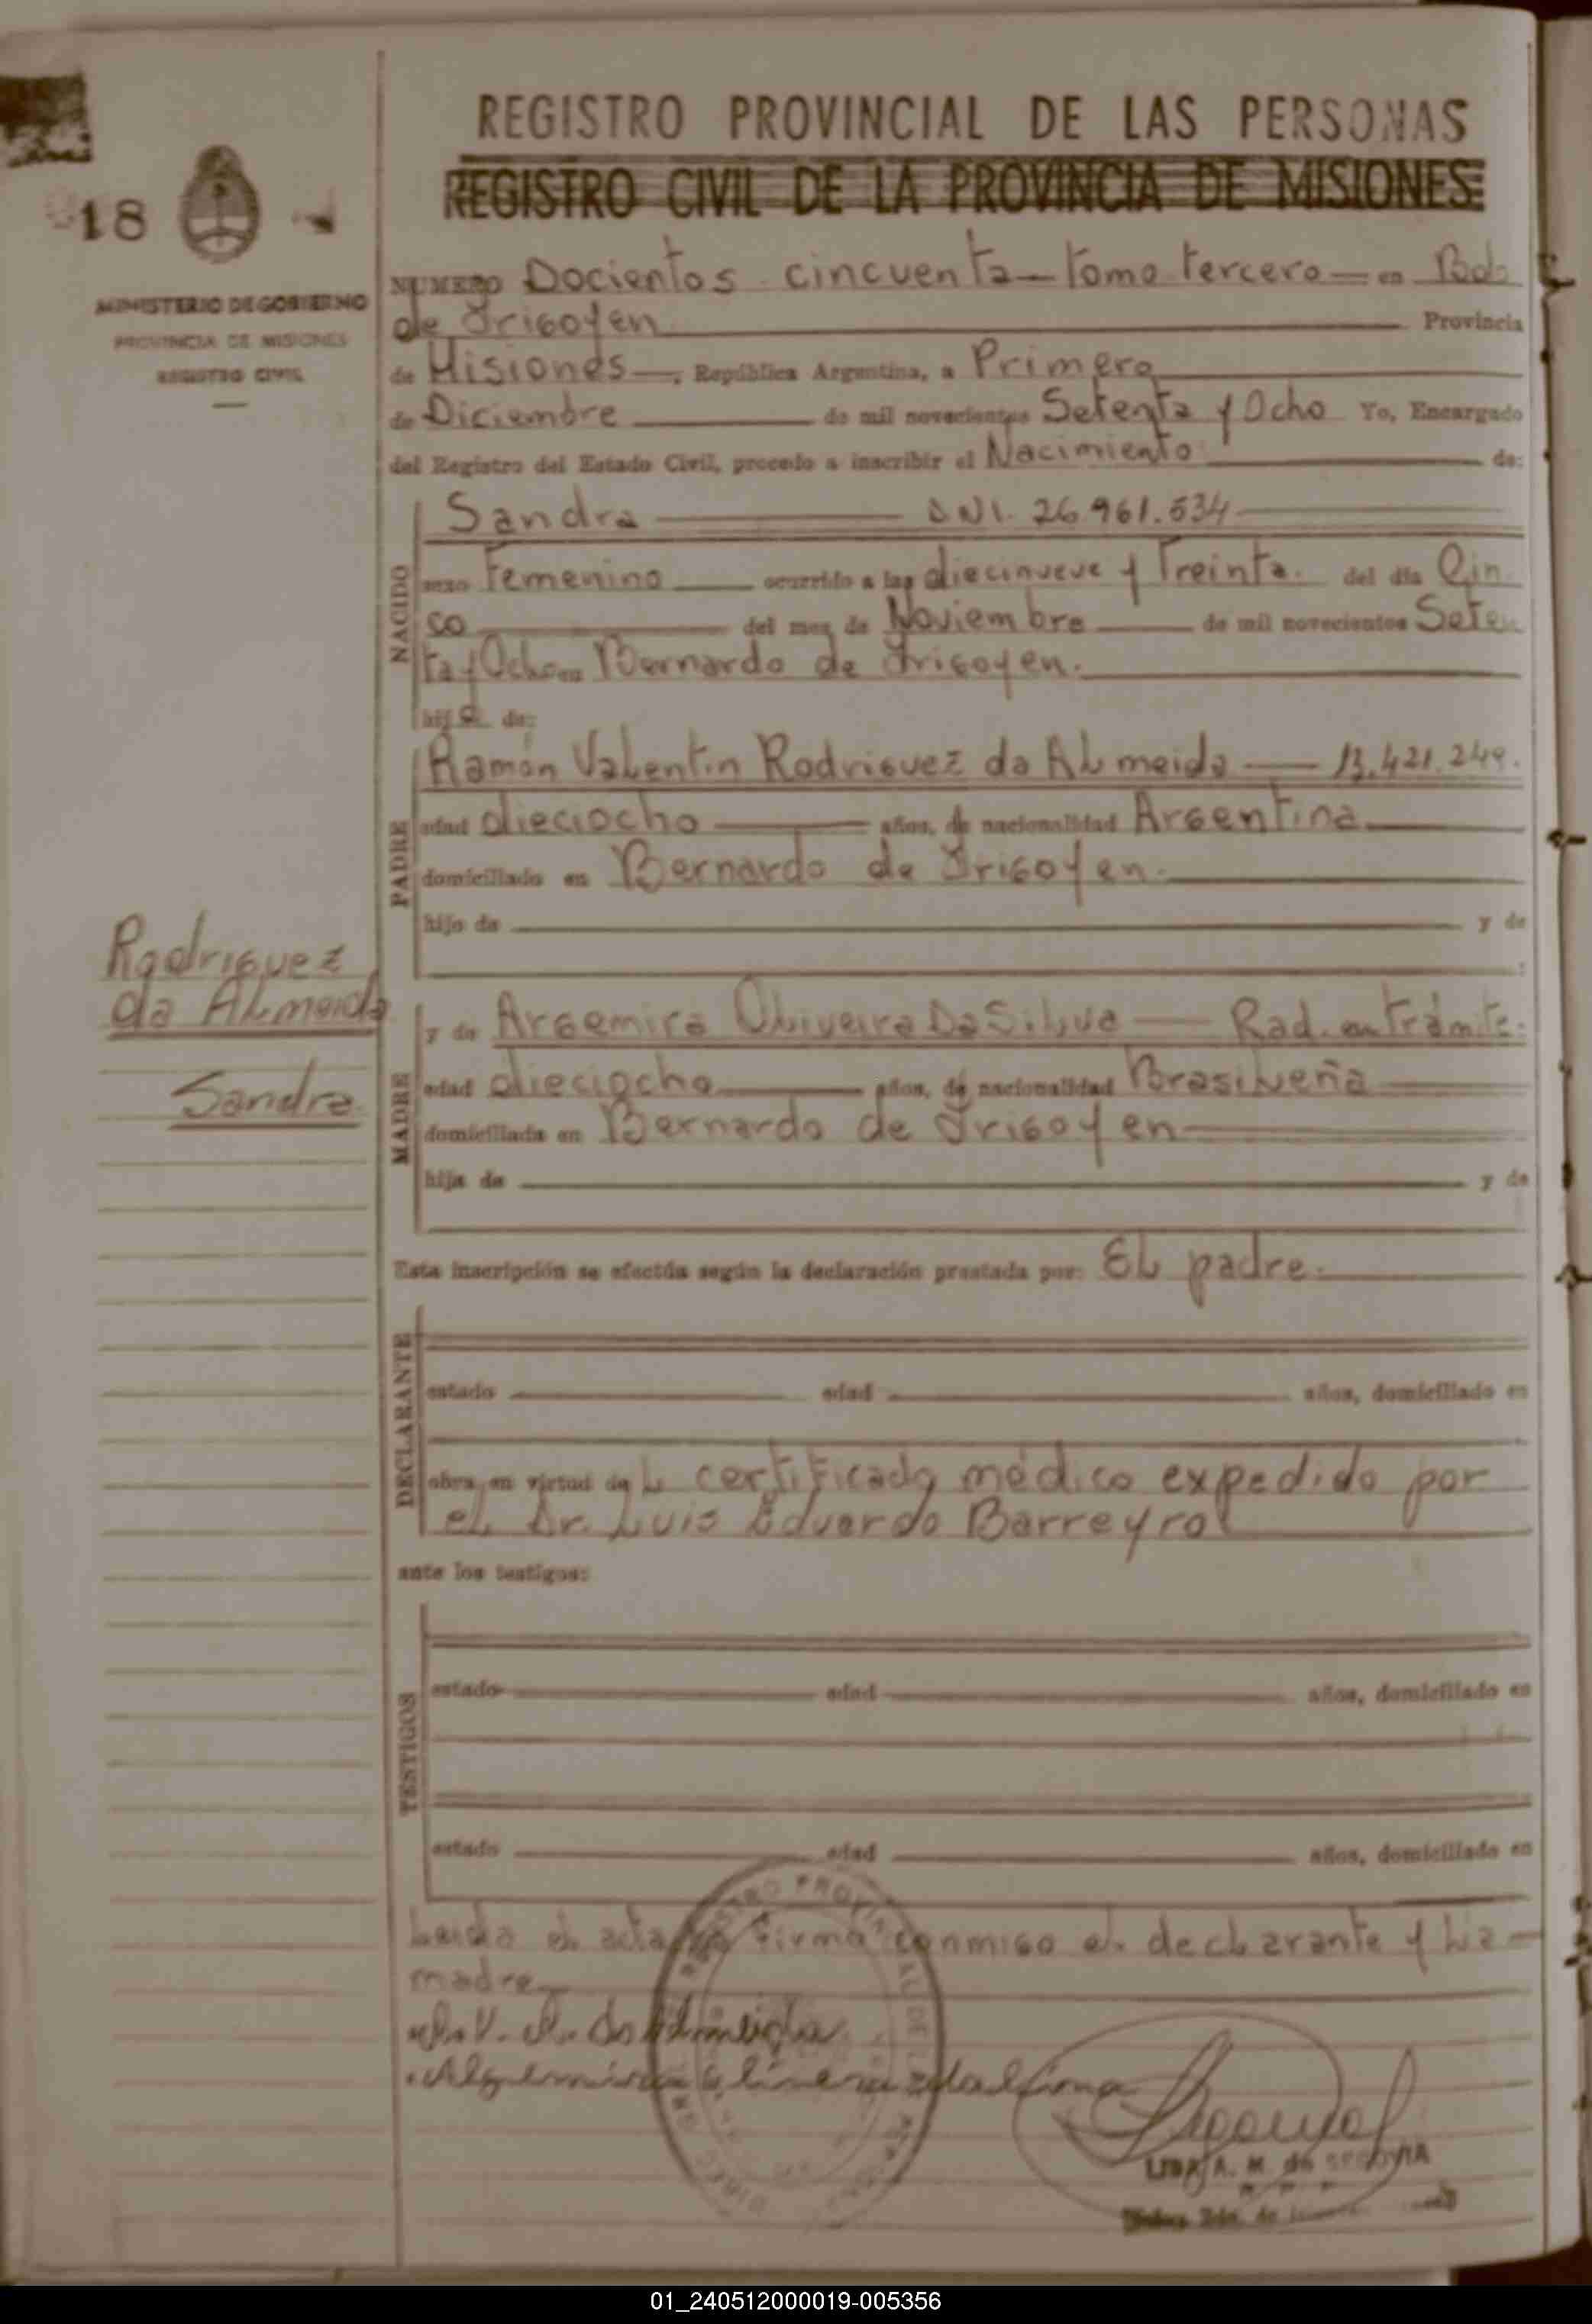 REGISTRO PROVINCIAL DE LAS PERSONAS
REGISTRO CIVIL DE LA PROVINCIA DE MISIONES
18
MINISTERIO DE GOBIERNO
PROVINCIA DE MISIONES
REGISTRO CIVIL
NUMERO Docientos cincuenta - tomo tercero - en Bdo
de Irigoyen Provincia
de Misiones, República Argentina, a Primero
de Diciembre de mil novecientos Setenta y Ocho Yo, Encargado
del Registro del Estado Civil, procedo a inscribir el Nacimiento de:
NACIDO
Sandra DNI. 26.961.534
sexo Femenino ocurrido a las diecinueve y Treinta. del día Cin
co del mes de Noviembre de mil novecientos Seten
ta y Ocho en Bernardo de Irigoyen.
hija de:
PADRE
Ramón Valentin Rodriguez da Almeida - 13.421.249.
edad dieciocho años, de nacionalidad Argentina
domiciliado en Bernardo de Irigoyen.
hijo de y de
Rodriguez
da Almeida
Sandra
MADRE
y de Argemira Oliveira Da Silva - Rad. en trámite.
edad dieciocho años, de nacionalidad Brasileña
domiciliada en Bernardo de Irigoyen
hija de y de
Esta inscripción se efectúa según la declaración prestada por: El padre.
DECLARANTE
estado edad años, domiciliado en
obra en virtud del certificado médico expedido por
el Dr. Luis Eduardo Barreyro
ante los testigos:
TESTIGOS
estado edad años, domiciliado en
estado edad años, domiciliado en
Leida el acta firma conmigo el declarante y la
madre
R.V.R. da Almeida
Argemira oliveira da
LIDIA A. M. de SEGOVIA
01_240512000019-005356